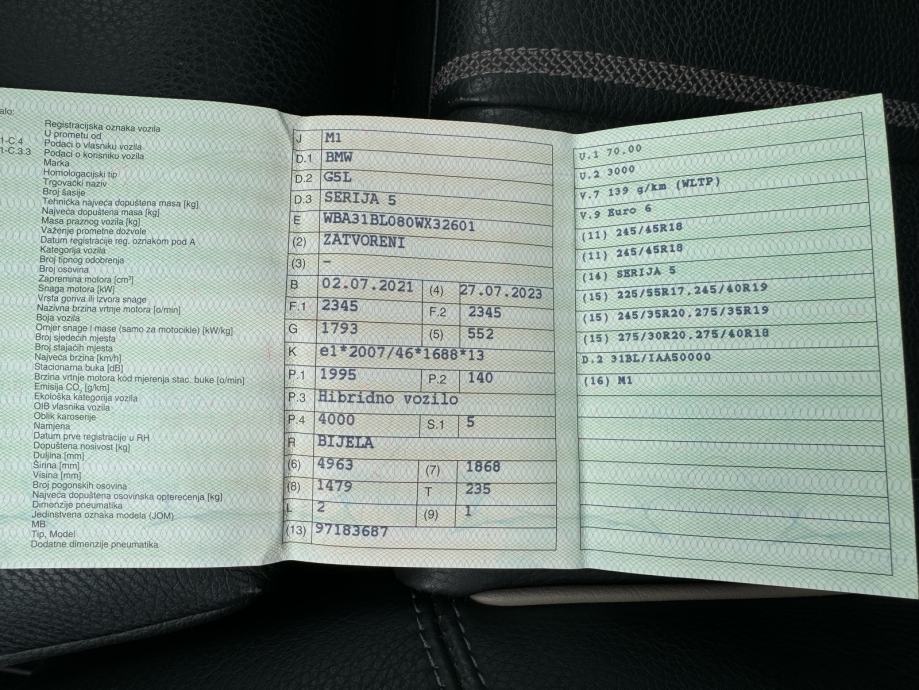 alo:
Registracijska oznaka vozila
U prometu od
1-C.4 Podaci o vlasniku vozila
1-C.3.3 Podaci o korisniku vozila
Marka
Homologacijski tip
Trgovački naziv
Broj šasije
Tehnička najveća dopuštena masa [kg]
Najveća dopuštena masa [kg]
Masa praznog vozila [kg]
Važenje prometne dozvole
Datum registracije reg. oznakom pod A
Kategorija vozila
Broj tipnog odobrenja
Broj osovina
Zapremina motora [cm³]
Snaga motora [kW]
Vrsta goriva ili izvora snage
Nazivna brzina vrtnje motora [o/min]
Boja vozila
Omjer snage i mase (samo za motocikle) [kW/kg]
Broj sjedećih mjesta
Broj stajaćih mjesta
Najveća brzina [km/h]
Stacionarna buka [dB]
Brzina vrtnje motora kod mjerenja stac. buke [o/min]
Emisija CO₂ [g/km]
Ekološka kategorija vozila
OIB vlasnika vozila
Oblik karoserije
Namjena
Datum prve registracije u RH
Dopuštena nosivost [kg]
Duljina [mm]
Širina [mm]
Visina [mm]
Broj pogonskih osovina
Najveća dopuštena osovinska opterećenja [kg]
Dimenzije pneumatika
Jedinstvena oznaka modela (JOM)
MB
Tip, Model
Dodatne dimenzije pneumatika
J M1
D.1 BMW
D.2 G5L
D.3 SERIJA 5
E WBA31BL080WX32601
(2) ZATVORENI
(3) –
B 02.07.2021 (4) 27.07.2023
F.1 2345 F.2 2345
G 1793 (5) 552
K e1*2007/46*1688*13
P.1 1995 P.2 140
P.3 Hibridno vozilo
P.4 4000 S.1 5
R BIJELA
(6) 4963 (7) 1868
(8) 1479 T 235
L 2 (9) 1
(13) 97183687
U.1 70.00
U.2 3000
V.7 139 g/km (WLTP)
V.9 Euro 6
(11) 245/45R18
(11) 245/45R18
(14) SERIJA 5
(15) 225/55R17,245/40R19
(15) 245/35R20,275/35R19
(15) 275/30R20,275/40R18
D.2 31BL/IAA50000
(16) M1